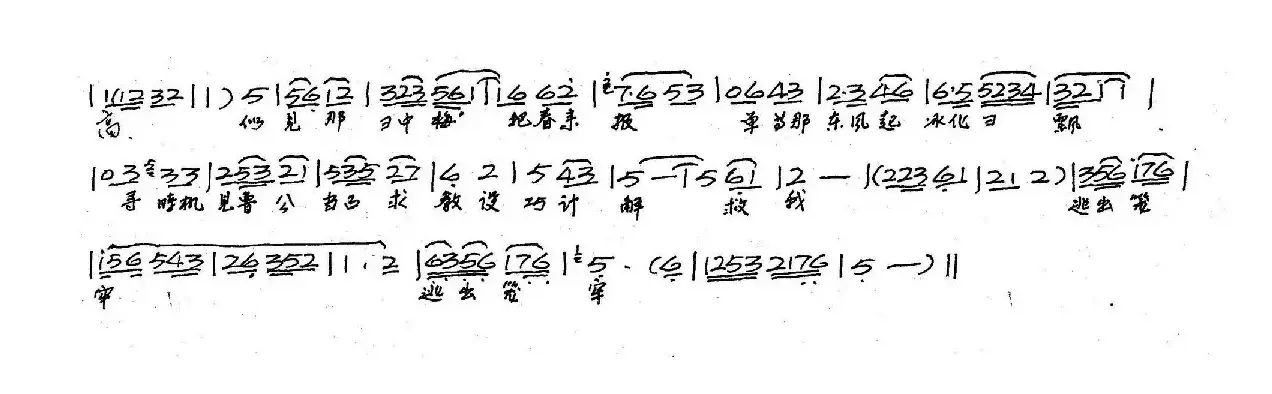 |1(112 32 | 1 1 ) 5 | 56 12 | 323 5611 | 6 62 | 7·6 53 | 06 43 | 2·3 46 | 6·5 5234 | 3211 |
高. 似 见 那 ヨ 中 梅 把 春 来 报 单 等 那 东 风 起 冰 化 ヨ 飘
| 03 33 | 253 21 | 535 27 | 6 2 | 5 43 | 5 — 1 5 61 | 2 — | (223 61 | 21 2) | 356 176 |
寻 时机 见 鲁 公 当面 求 教 设 巧 计 解 救 我 逃 出 笼
| 156 543 | 26 352 | 1 · 2 | 6356 176 | 5 · (6 | 1253 2176 | 5 — ) ||
牢 逃 出 笼 牢